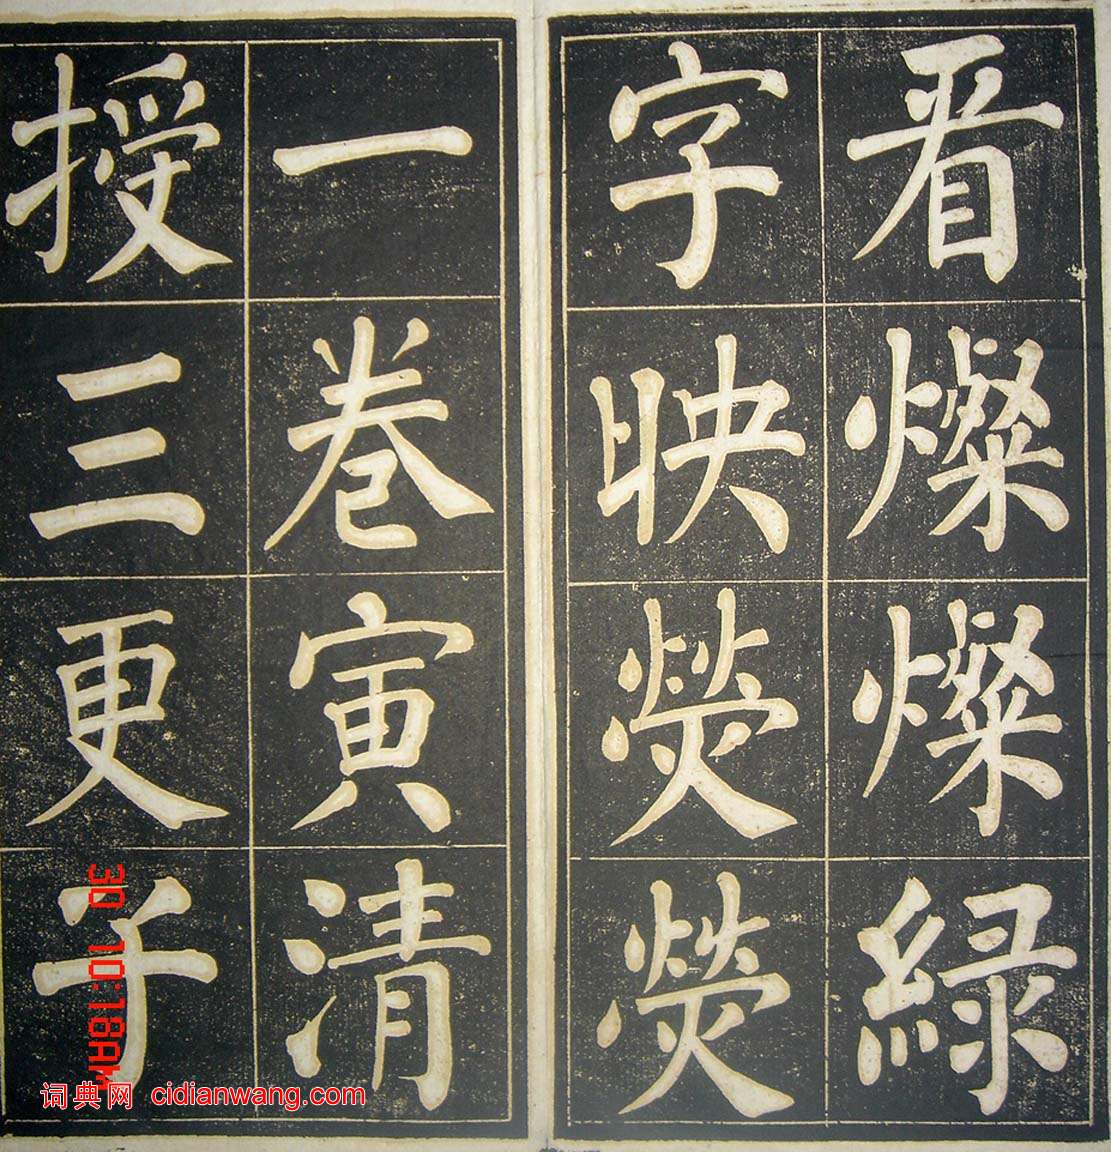 看燦燦綠
字映熒熒
一卷寅清
授三更子
30 10:18AM
词典网 cidianwang.com